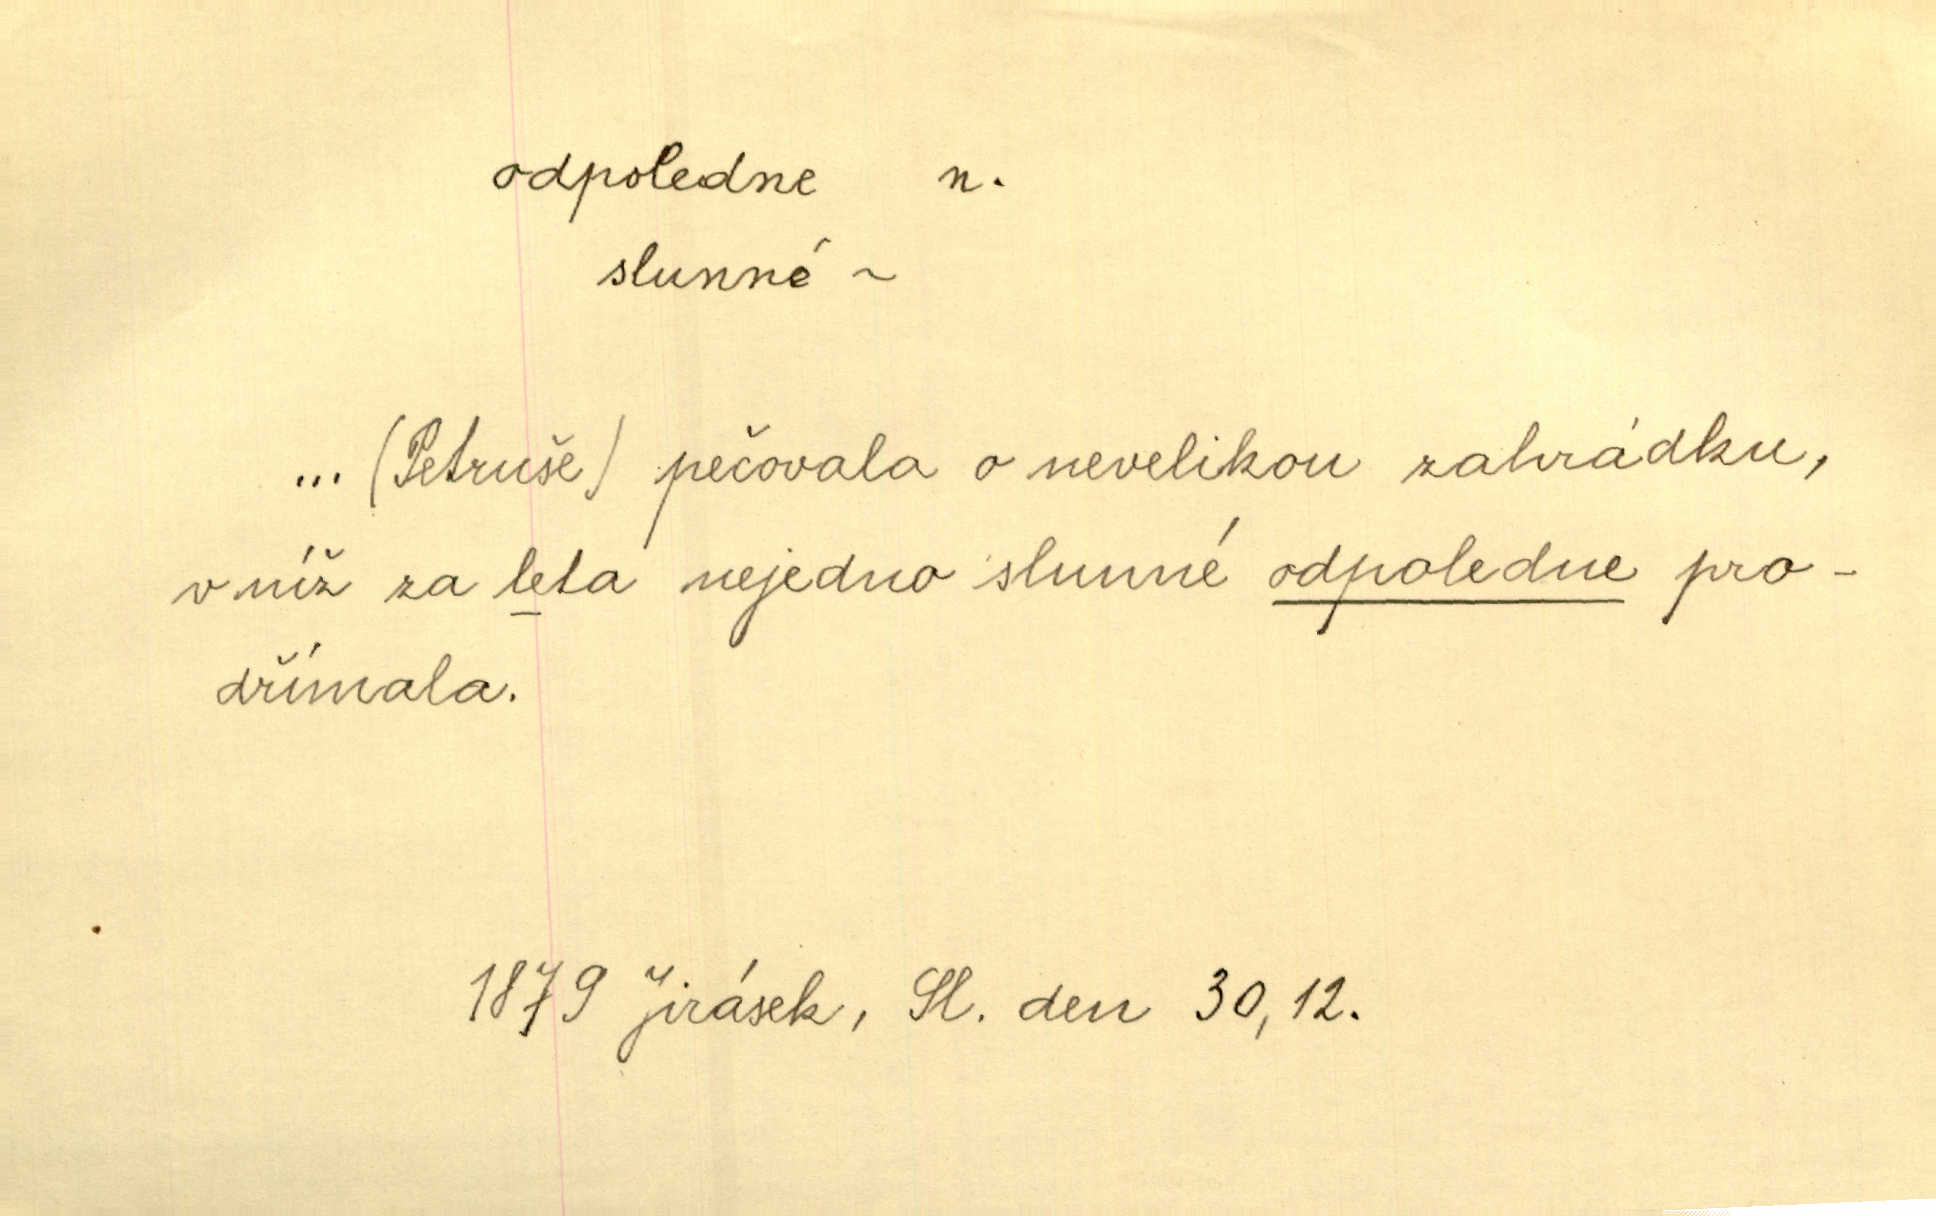 odpoledne n.
slunné ~
... (Petruše) pečovala o nevelikou zahrádku,
v níž za leta nejedno slunné odpoledne pro-
dřímala.
1879 Jirásek, Sl. den 30, 12.